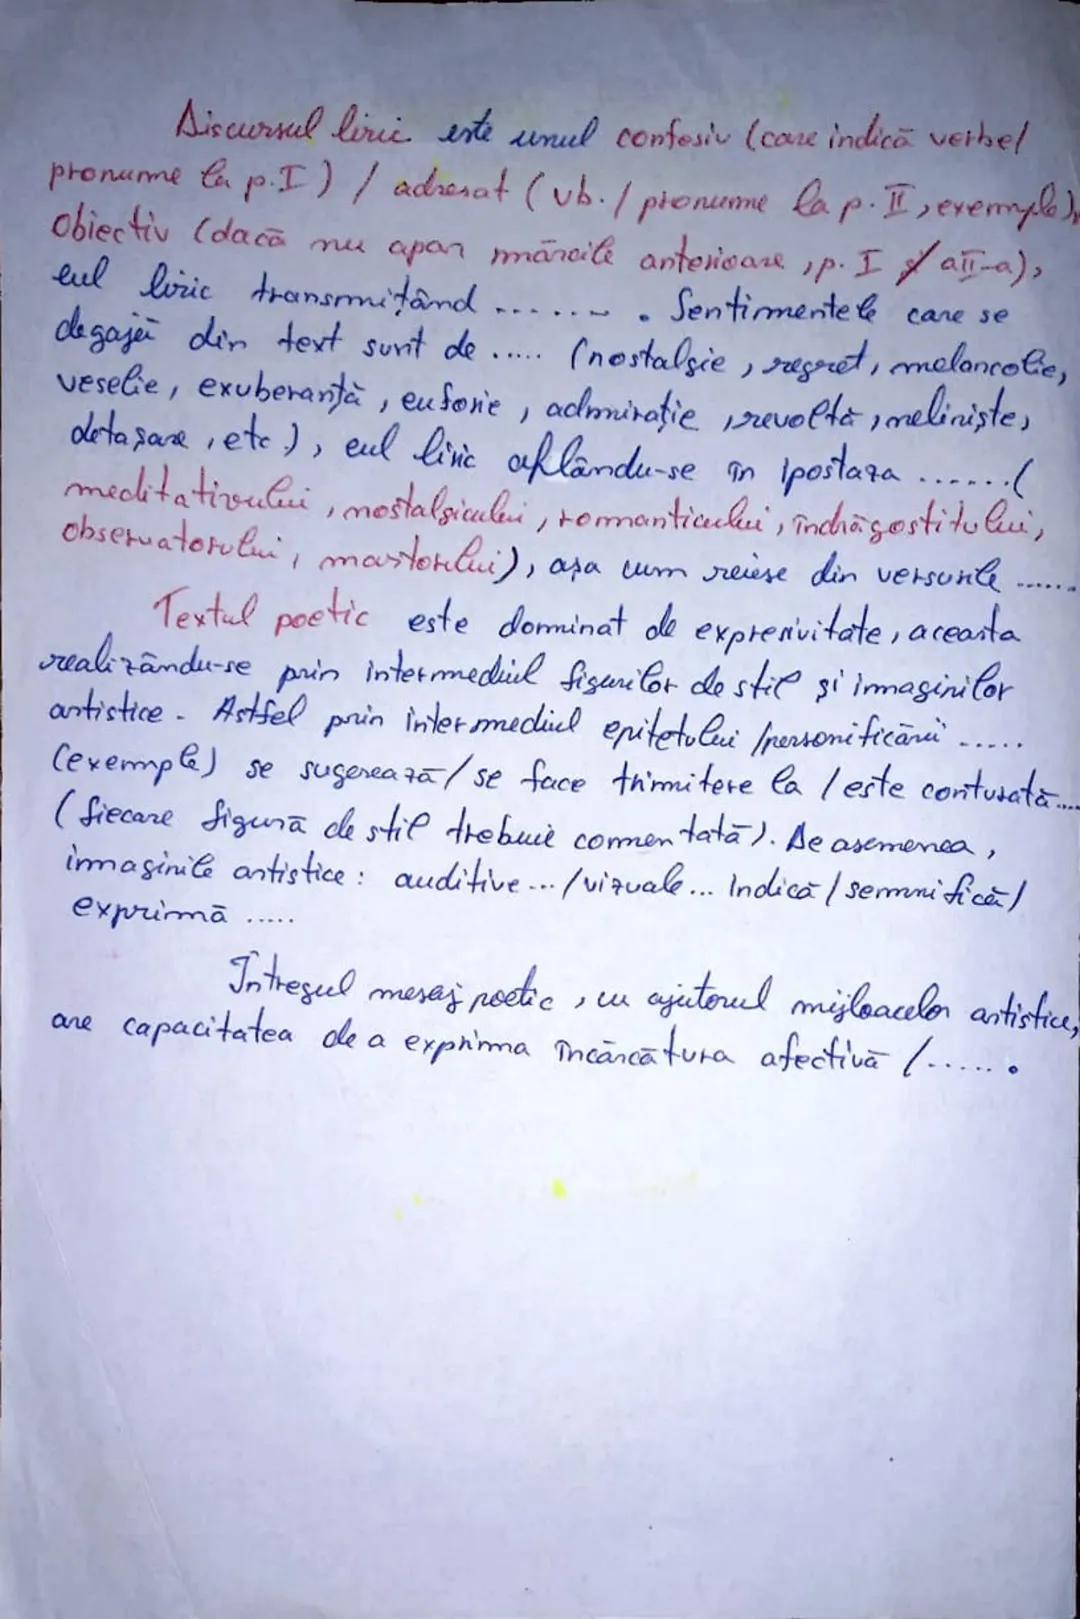 Discursul liric este unul confesiv (care indică verbe/
pronume la p. I) / adresat (vb. / pronume la p. II, exemple),
obiectiv (dacă nu apar mărcile anterioare, p. I și a II-a),
eul liric transmițând ....... . Sentimentele care se
degajă din text sunt de ..... (nostalgie, regret, melancolie,
veselie, exuberanță, euforie, admirație, revoltă, neliniște,
detașare, etc.), eul liric aflându-se în ipostaza ......(
meditativului, nostalgicului, romanticului, îndrăgostitului,
observatorului, martorului), așa cum reiese din versurile ......
Textul poetic este dominat de expresivitate, aceasta
realizându-se prin intermediul figurilor de stil și imaginilor
artistice. Astfel prin intermediul epitetului /personificării .....
(exemple) se sugerează/ se face trimitere la / este conturată....
(fiecare figură de stil trebuie comentată). De asemenea,
imaginile artistice: auditive ... /vizuale... indică / semnifică/
exprimă .....
Întregul mesaj poetic, cu ajutorul mijloacelor artistice,
are capacitatea de a exprima încărcătura afectivă /..... .